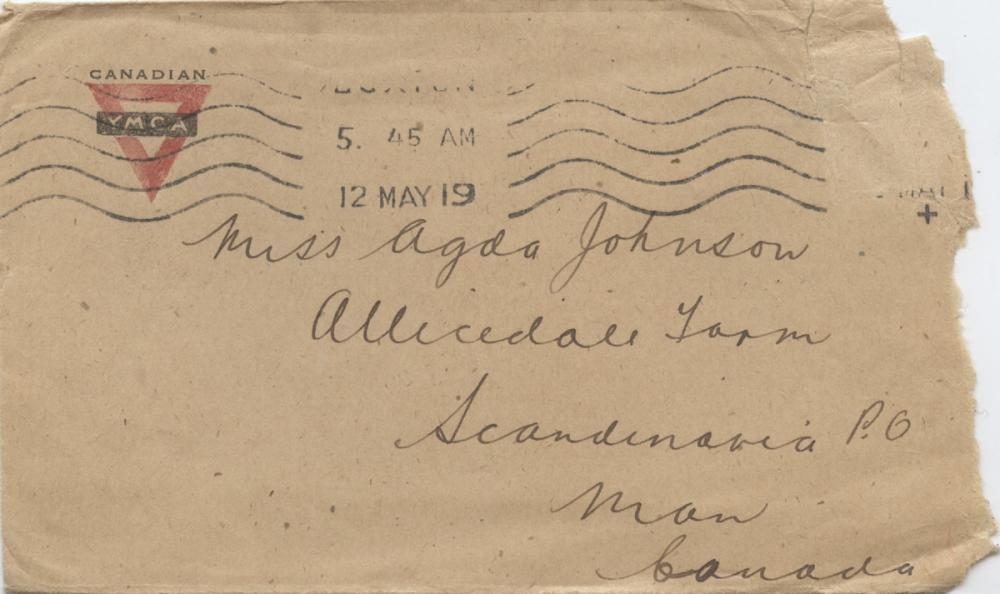 CANADIAN
YMCA
BUXTON
5. 45 AM
12 MAY 19
Miss Agda Johnson
Allicedale Farm
Scandinavia P.O
Man
Canada